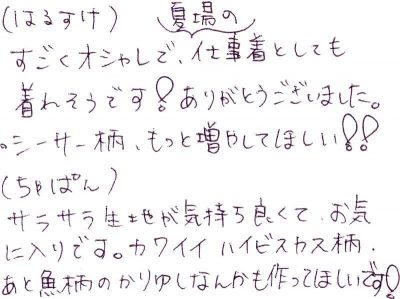 (はるすけ) 夏場の
すごくオシャレで、仕事着としても
着れそうです!ありがとうございました。
。シーサー柄、もっと増やしてほしい!!
(ちゃぱん)
サラサラ生地が気持ち良くて、お気
に入りです。カワイイ ハイビスカス柄、
あと魚柄のかりゆしなんかも作ってほしいです!